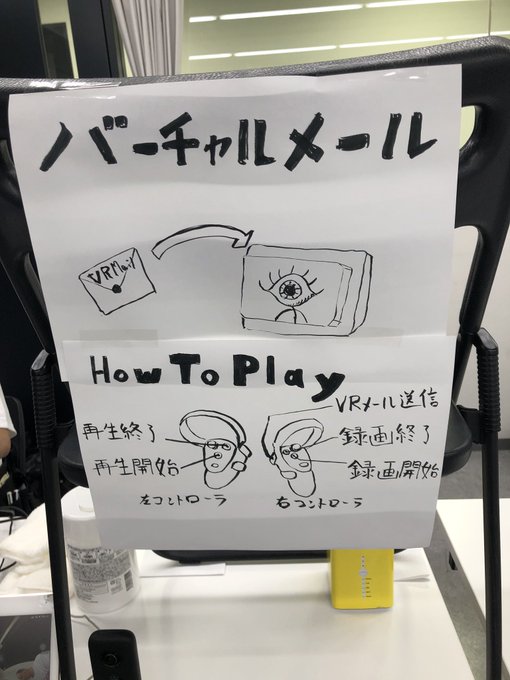 バーチャルメール
VRMail
How To Play
VRメール送信
再生終了
録画終了
再生開始
録画開始
左コントローラ
右コントローラ